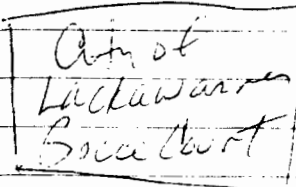 City of
Lackawanna
Bocce Court